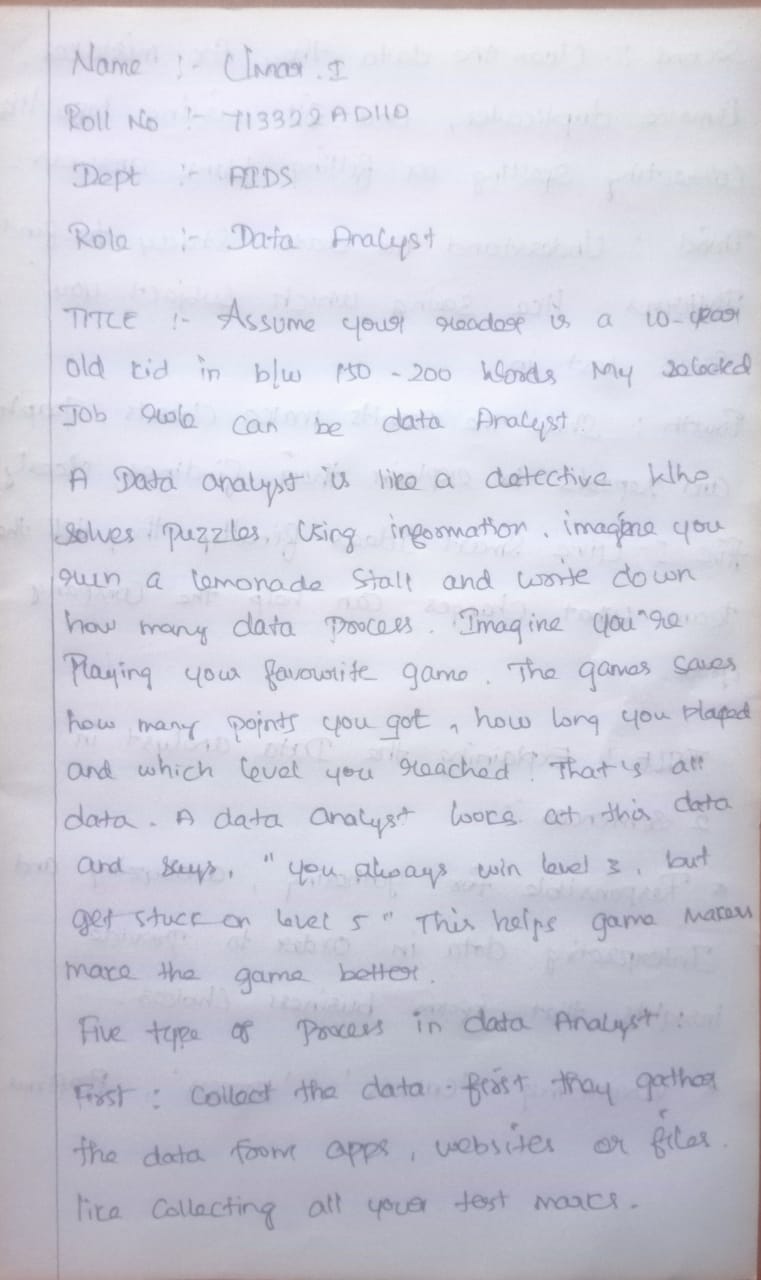 Name :- Umar . I
Roll No :- 713322AD110
Dept :- AIDS
Role :- Data Analyst
TITLE :- Assume your reader is a 10-year
old kid in b/w 150 - 200 words My selected
Job role can be data Analyst
A Data analyst is like a detective who
solves puzzles. Using information. imagine you
run a lemonade Stall and write down
how many data process. Imagine you're
Playing your favourite game. The games saves
how many points you got, how long you played
and which level you reached. That's all
data. A data analyst looks at this data
and says, "you always win level 3, but
get stuck on level 5" This helps game makers
make the game better.
Five type of Process in data Analyst :
First : Collect the data first they gather
the data from apps, websites or files.
like Collecting all your test marks.